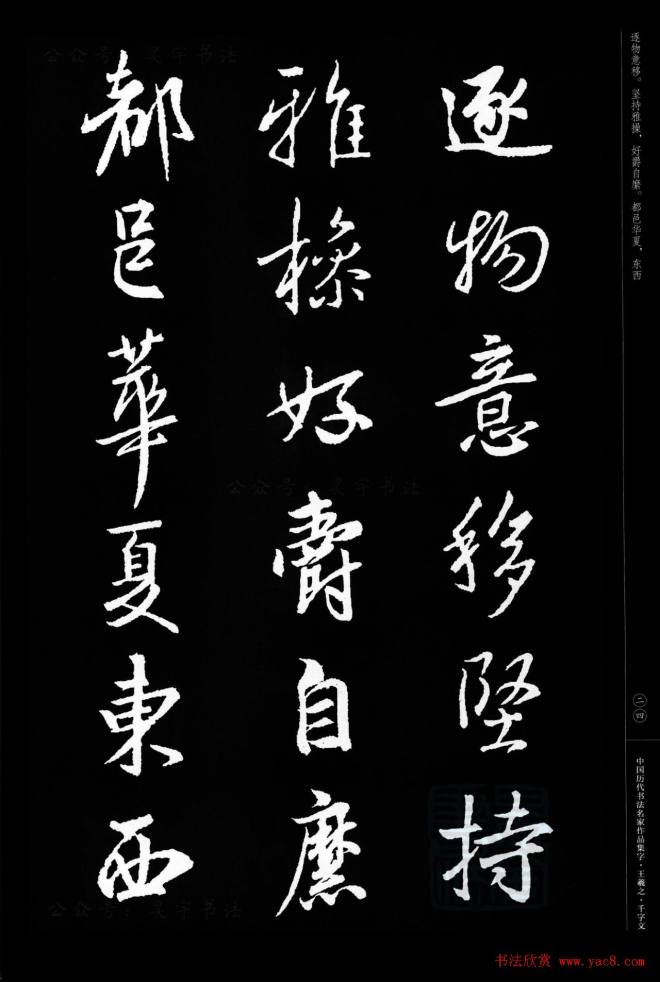 逐物意移堅持
雅操好爵自縻
都邑華夏東西
逐物意移。坚持雅操，好爵自縻。都邑华夏，东西
二四
中国历代书法名家作品集字·王羲之·千字文
公众号：昊宇书法
公众号：昊宇书法
公众号：昊宇书法
书法欣赏 www.yac8.com